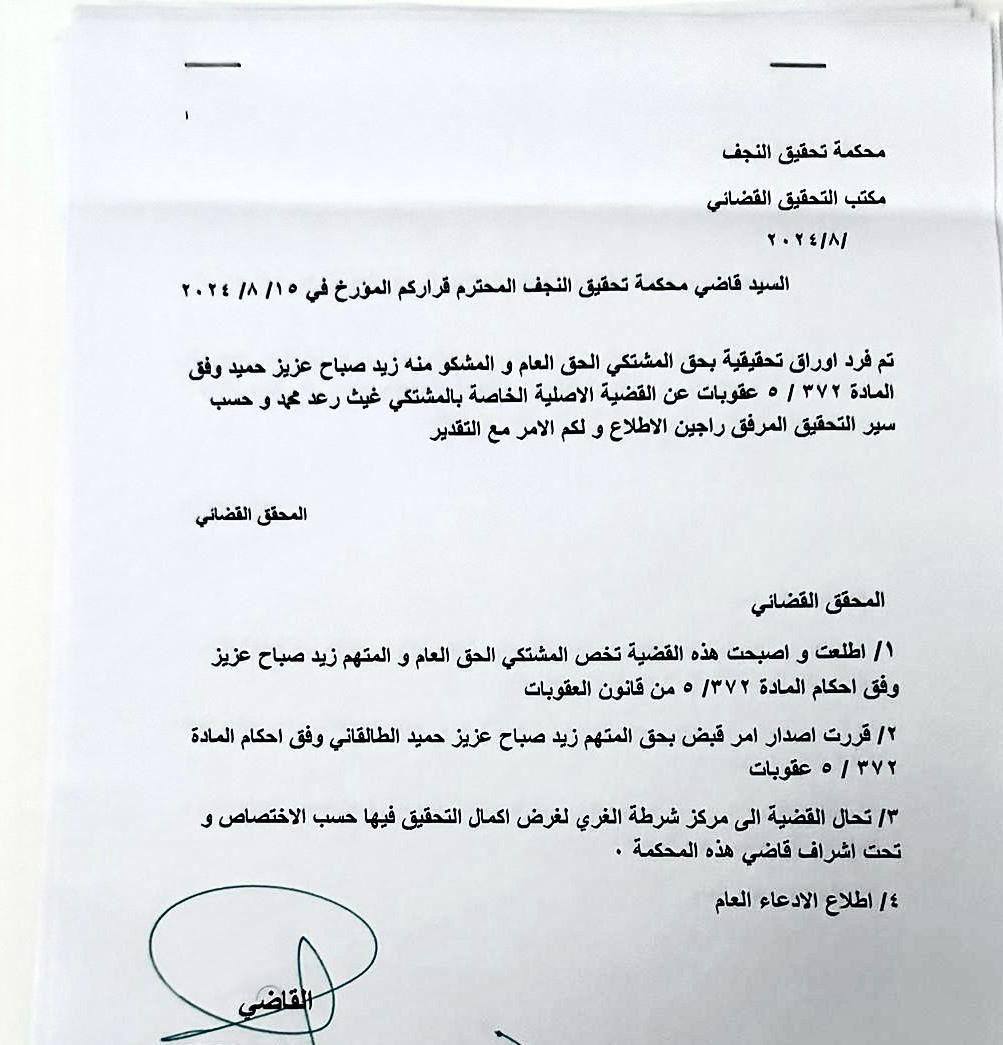 ١
محكمة تحقيق النجف
مكتب التحقيق القضائي
/٢٠٢٤/٨
السيد قاضي محكمة تحقيق النجف المحترم قراركم المؤرخ في ١٥/ ٨/ ٢٠٢٤
تم فرد اوراق تحقيقية بحق المشتكي الحق العام و المشكو منه زيد صباح عزيز حميد وفق
المادة ٣٧٢ / ٥ عقوبات عن القضية الاصلية الخاصة بالمشتكي غيث رعد محمد و حسب
سير التحقيق المرفق راجين الاطلاع و لكم الامر مع التقدير
المحقق القضائي
المحقق القضائي
١/ اطلعت و اصبحت هذه القضية تخص المشتكي الحق العام و المتهم زيد صباح عزيز
وفق احكام المادة ٣٧٢/ ٥ من قانون العقوبات
٢/ قررت اصدار امر قبض بحق المتهم زيد صباح عزيز حميد الطالقاني وفق احكام المادة
٣٧٢ / ٥ عقوبات
٣/ تحال القضية الى مركز شرطة الغري لغرض اكمال التحقيق فيها حسب الاختصاص و
تحت اشراف قاضي هذه المحكمة ٠
٤/ اطلاع الادعاء العام
القاضي